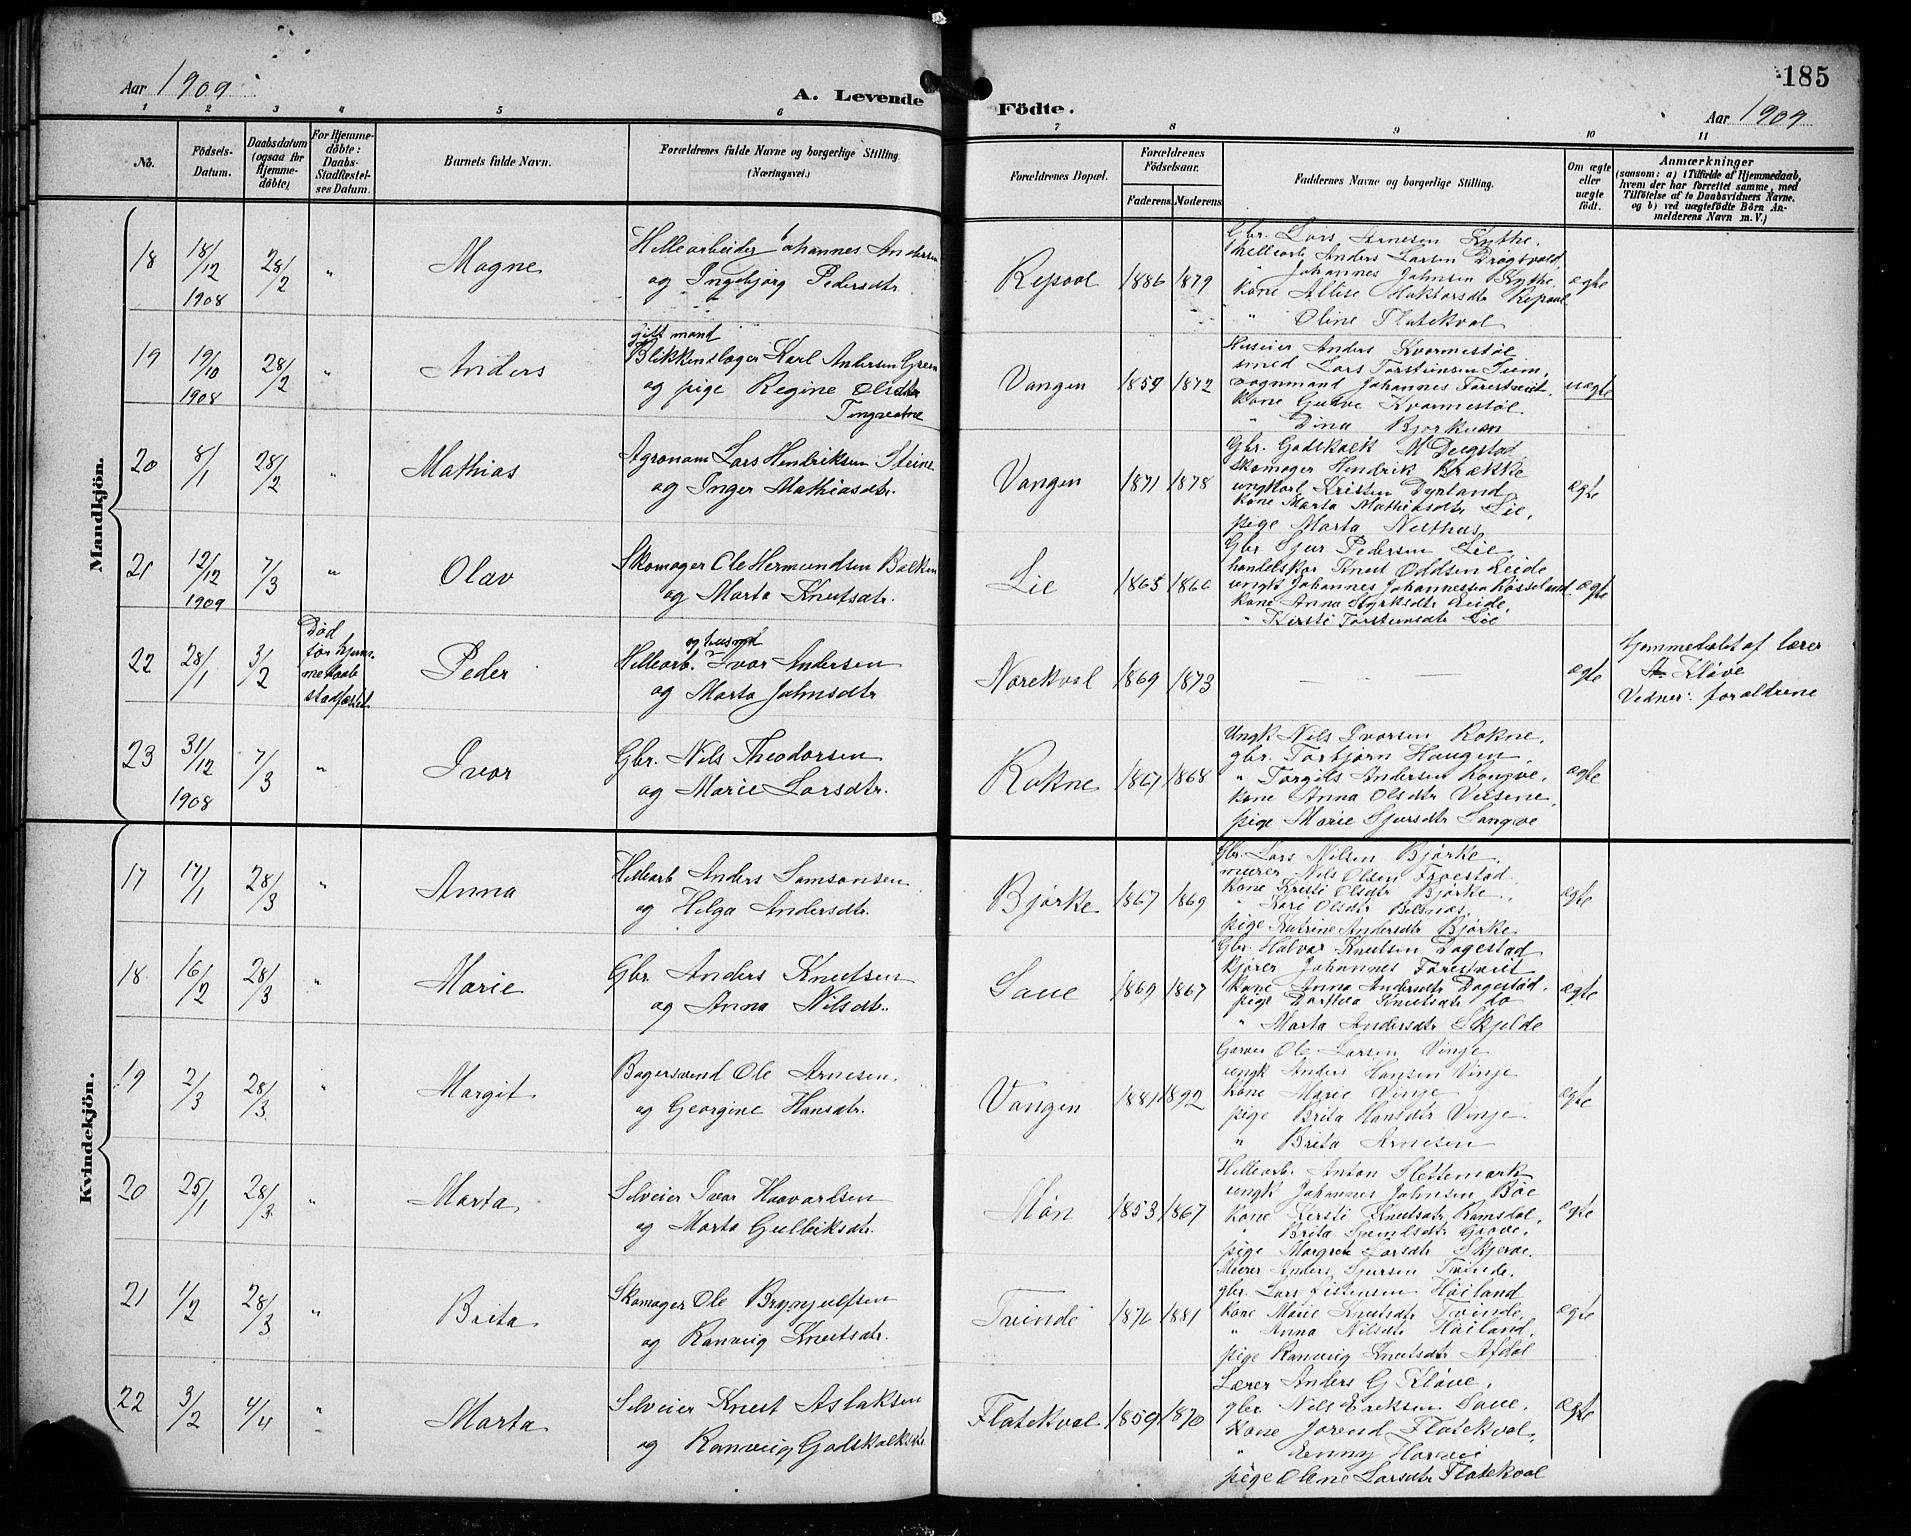 Aar 1909
A. Levende
Födte.
185
Aar 1909
1 2 3 4 5 6 7 8 9 10 11
No.
Fødsels-Datum.
Daabsdatum (ogsaa for Hjemmedøbte)
For Hjemmedøbte: Daabs-Stadfæstelses Datum.
Barnets fulde Navn.
Forældrenes fulde Navne og borgerlige Stilling
(Næringsvei.)
Forældrenes Bopæl.
Forældrenes Fødselsaar.
Faderens Moderens
Faddernes Navne og borgerlige Stilling.
Om ægte eller uægte født.
Anmærkninger
(saasom: a) i Tilfælde af Hjemmedaab, hvem der har forrettet samme, med Tilføielse af to Daabsvidners Navne, og b) ved uægtefødte Børn Anmelderens Navn m. V.)
Mandkjön.
18 18/12 1908 28/2 " Magne
Hellearbeider Johannes Andersen
og Ingebjørg Pedersdtr
Repaal 1886 1879
Gbr. Lars Arnesen Kythe,
Hellearb Anders Larsen Drogsvold,
" Johannes Johnsen Kythe,
kone Altise Haktorsdtr Repaal
" Oline Flatekval
ægte
19 19/10 1908 28/2 " Anders
gift mand
Blikkenslager Karl Andersen Green
og pige Regine Olsdtr
Tingvatne
Vangen 1859 1872
Huseier Anders Kvarmestøl
smed Lars Torsteinsen Lum,
vognmand Johannes Førestveit,
kone Gurve Kvarmestøl
" Dina Bjørkum
uægte
20 8/1 28/2 " Mathias
Agronom Lars Hendriksen Steine
og Inger Mathiasdtr.
Vangen 1871 1878
Gbr. Godskalk M Dugstad,
Skomager Hendrik Brække
ungkarl Kristen Dyrland,
kone Marta Mathiasdtr Lie,
pige Marta Nesthus,
ægte
21 12/12 1909 7/3 " Olav
Skomager Ole Hermundsen Balken
og Marta Knutsdtr.
Lie 1865 1866
Gbr Sjur Pedersen Lie
handelskar Knut Oddsen Leide
ungk Johannes Johannessen Røsseland
kone Anna Styrksdtr Eide,
" Kirsti Torsteinsdtr Lie
ægte
22 28/1 3/2
Død
før hjem-
medaab
stadfæstet
Peder
og husmd
Hellearb. Ivar Andersen
og Marta Johnsdtr
Norekval 1869 1873
— — —
ægte
Hjemmedøbt af lærer
A Kløve
Vidner: forældrene
23 31/12 1908 7/3 " Ivar
Gbr. Nils Theodorsen
og Marie Larsdtr.
Rokne 1867 1868
Ungk Nils Ivarsen Rokne,
gbr. Torbjørn Haugen,
" Torgils Andersen Rongve,
kone Anna Olsdtr Velsene,
pige Marie Sjursdtr Sangve
ægte
Kvindekjön.
17 17/1 28/3 " Anna
Hellearb Anders Samsonsen
og Helga Andersdtr.
Bjørke 1867 1869
Gbr. Lars Nilsen Bjørke,
murer Nils Olsen Froestad,
kone Kristi Olsdtr Bjørke,
" Kari Olsdtr Belsnæs,
pige Katrine Andersdtr Bjørke
ægte
18 16/2 28/3 " Marie
Gbr Anders Knutsen
og Anna Nilsdtr.
Saue 1869 1867
Gbr. Halvar Knutsen Dagestad
kjører Johannes Førestveit
kone Anna Andersdtr Dagestad,
pige Dorthea Knutsdtr do
" Marta Andersdtr Skjelde
ægte
19 2/3 28/3 " Margit
Bagersvend Ole Arnesen,
og Georgine Hansdtr.
Vangen 1881 1892
Garver Ole Larsen Vinje
ungk Anders Hansen Vinje
kone Marie Vinje
pige Brita Hansdtr Vinje
" Brita Arnesen
ægte
20 25/1 28/3 " Marta
Selveier Ivar Haavarlsen
og Marta Gulleiksdtr.
Møn 1853 1867
Hellearb. Anton Slettemark
ungk Johannes Johnsen Bøe
kone Kirsti Knutsdtr Ramsdal,
" Brita Svendsdtr Grove,
pige Margrete Larsdtr Skjerve
ægte
21 1/2 28/3 " Brita
Skomager Ole Brynjulfsen
og Ranveig Knutsdtr.
Tvinde 1876 1881
Murer Anders Sjursen Tvinde,
gbr. Lars Høiland
kone Marie Knutsdtr Tvinde,
" Anna Nilsdtr Høiland,
pige Ranveig Knutsdtr Afdal
ægte
22 3/2 4/4 " Marta
Selveier Knut Aslaksen
og Ranveig Godskalksdtr
Flatekval 1859 1870
Lærer Anders G Kløve,
gbr. Nils Eriksen Saue,
kone Jorend Flatekval,
" Enny Horvei
pige Oline Larsdtr Flatekval
ægte